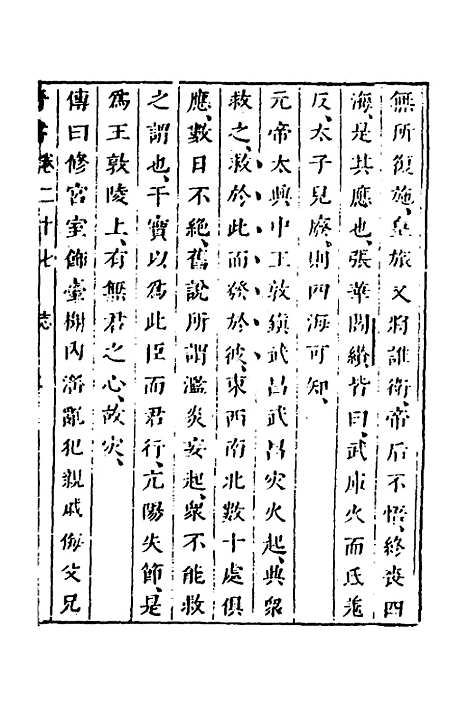 無所復施皇旅又將誰衛帝后不悟終喪四
海是其應也張華閻纘皆曰武庫火而氐羗
反太子見廢則四海可知
元帝太興中王敦鎮武昌武昌災火起興眾
救之救於此而發於彼東西南北數十處俱
應數日不絕舊說所謂濫炎妄起眾不能救
之謂也干寶以為此臣而君行亢陽失節是
爲王敦陵上有無君之心故災
傳曰修宮室飾臺榭內淫亂犯親戚侮父兄
晉書卷二十七 志